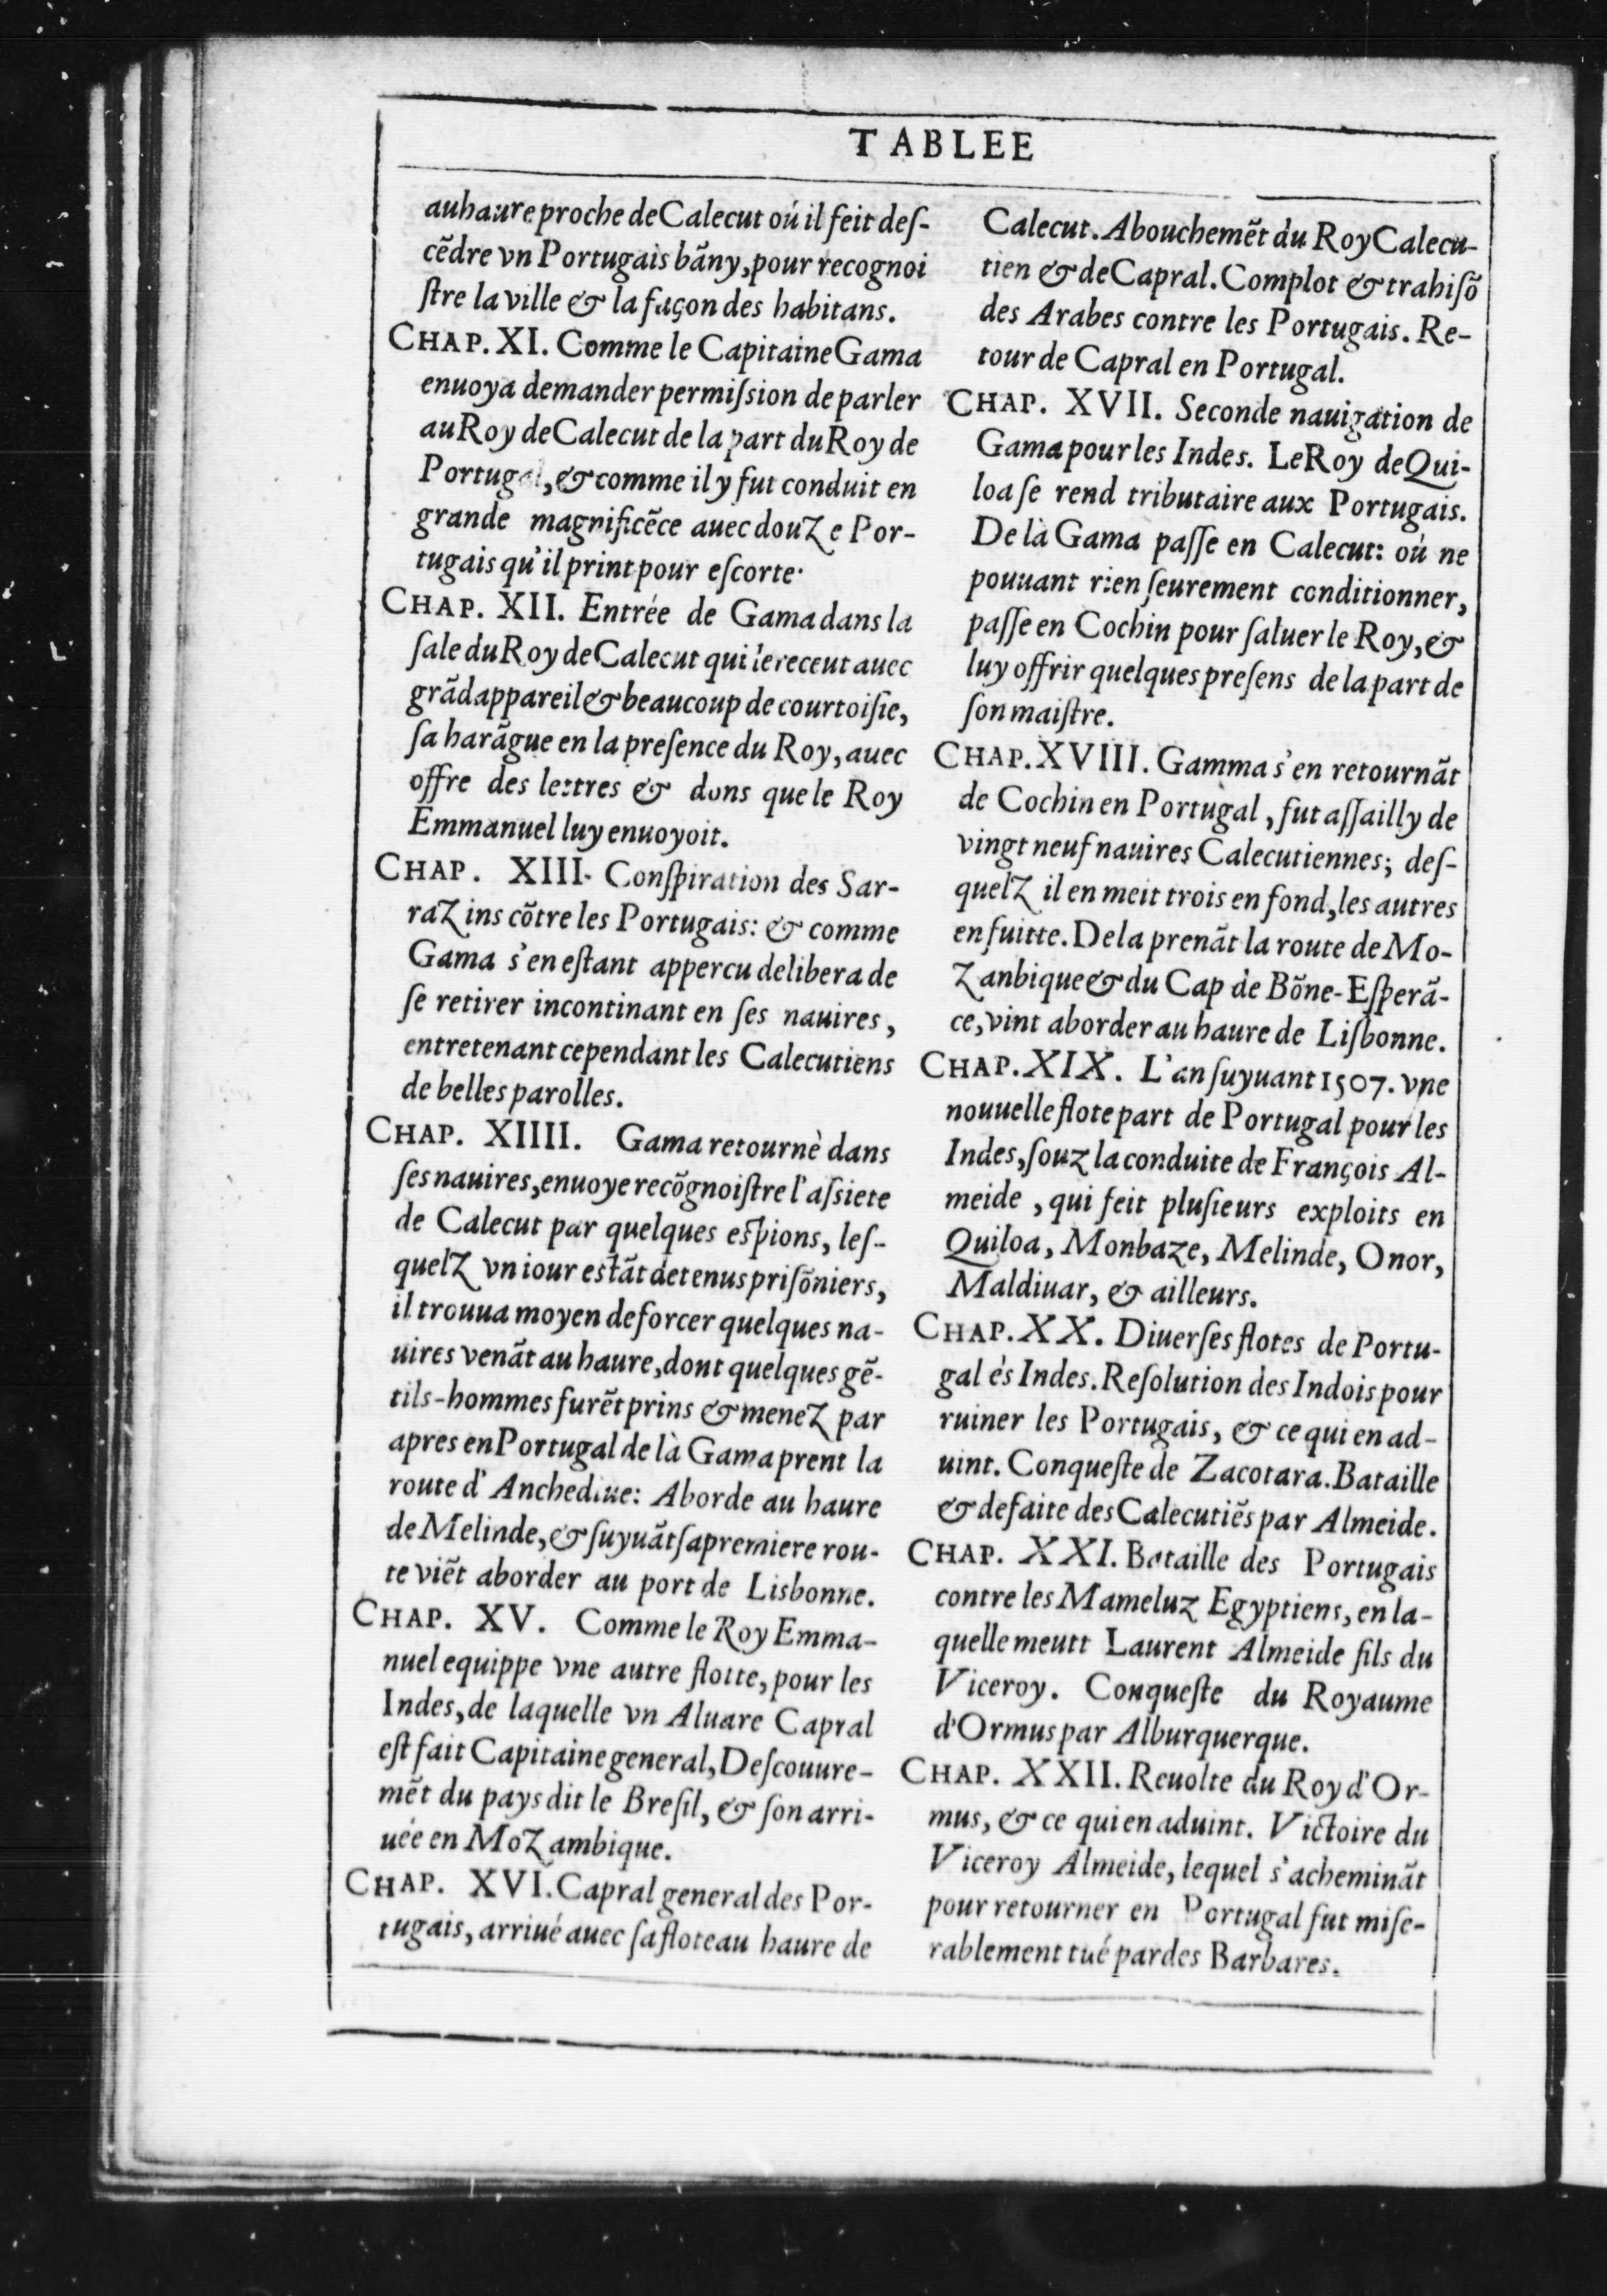 TABLEE
au haure proche de Calecut où il feit deſ-
cẽdre vn Portugais bãny, pour recognoi
ſtre la ville & la façon des habitans.
CHAP. XI. Comme le Capitaine Gama
enuoya demander permiſsion de parler
au Roy de Calecut de la part du Roy de
Portugal, & comme il y fut conduit en
grande magnificẽce auec douze Por-
tugais qu'il print pour eſcorte.
CHAP. XII. Entrée de Gama dans la
ſale du Roy de Calecut qui le receut auec
grãd appareil & beaucoup de courtoiſie,
ſa harãgue en la preſence du Roy, auec
offre des lettres & dons que le Roy
Emmanuel luy enuoyoit.
CHAP. XIII. Conſpiration des Sar-
razins cõtre les Portugais: & comme
Gama s'en eſtant appercu delibera de
ſe retirer incontinant en ſes nauires,
entretenant cependant les Calecutiens
de belles parolles.
CHAP. XIIII. Gama retournè dans
ſes nauires, enuoye recõgnoiſtre l'aſsiete
de Calecut par quelques eſpions, leſ-
quelz vn iour eſtãt detenus priſõniers,
il trouua moyen de forcer quelques na-
uires venãt au haure, dont quelques gẽ-
tils-hommes furẽt prins & menez par
apres en Portugal de là Gama prent la
route d'Anchediue: Aborde au haure
de Melinde, & ſuyuãt ſa premiere rou-
te viẽt aborder au port de Lisbonne.
CHAP. XV. Comme le Roy Emma-
nuel equippe vne autre flotte, pour les
Indes, de laquelle vn Aluare Capral
eſt fait Capitaine general, Deſcouure-
mẽt du pays dit le Breſil, & ſon arri-
uée en Mozambique.
CHAP. XVI. Capral general des Por-
tugais, arriué auec ſa flote au haure de
Calecut. Abouchemẽt du Roy Calecu-
tien & de Capral. Complot & trahiſõ
des Arabes contre les Portugais. Re-
tour de Capral en Portugal.
CHAP. XVII. Seconde nauigation de
Gama pour les Indes. Le Roy de Qui-
loa ſe rend tributaire aux Portugais.
De là Gama paſſe en Calecut: où ne
pouuant rien ſeurement conditionner,
paſſe en Cochin pour ſaluer le Roy, &
luy offrir quelques preſens de la part de
ſon maiſtre.
CHAP. XVIII. Gamma s'en retournãt
de Cochin en Portugal, fut aſſailly de
vingt neuf nauires Calecutiennes; deſ-
quelz il en meit trois en fond, les autres
en fuitte. De la prenãt la route de Mo-
zanbique & du Cap de Bõne-Eſperã-
ce, vint aborder au haure de Liſbonne.
CHAP. XIX. L'an ſuyuant 1507. vne
nouuelle flote part de Portugal pour les
Indes, ſouz la conduite de François Al-
meide, qui feit pluſieurs exploits en
Quiloa, Monbaze, Melinde, Onor,
Maldiuar, & ailleurs.
CHAP. XX. Diuerſes flotes de Portu-
gal ès Indes. Reſolution des Indois pour
ruiner les Portugais, & ce qui en ad-
uint. Conqueſte de Zacotara. Bataille
& defaite des Calecutiẽs par Almeide.
CHAP. XXI. Bataille des Portugais
contre les Mameluz Egyptiens, en la-
quelle meutt Laurent Almeide fils du
Viceroy. Conqueſte du Royaume
d'Ormus par Alburquerque.
CHAP. XXII. Reuolte du Roy d'Or-
mus, & ce qui en aduint. Victoire du
Viceroy Almeide, lequel s'acheminãt
pour retourner en Portugal fut miſe-
rablement tué par des Barbares.